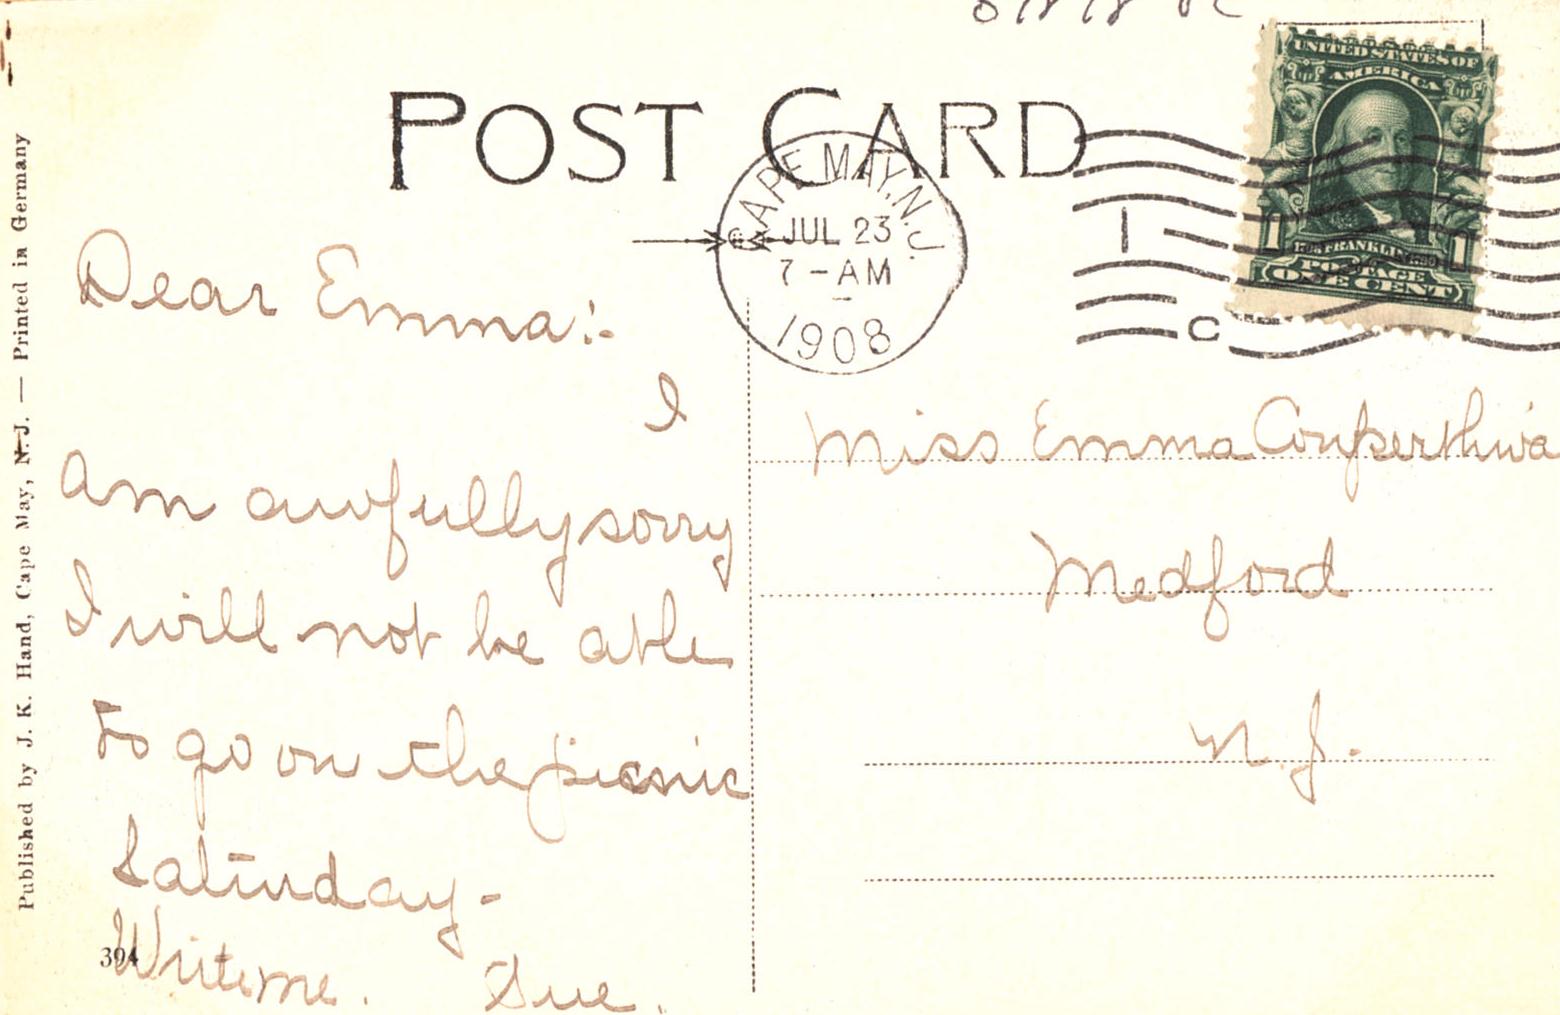 POST CARD
CAPE MAY, N.J.
JUL 23
7-AM
1908
1
C
UNITED STATES OF
AMERICA
1 1
POSTAGE
ONE CENT
Dear Emma:-
I
am awfully sorry
I will not be able
to go on the picnic
Saturday-
Write me. Sue.
Miss Emma Couperthwa
Medford
N.J.
394
Published by J. K. Hand, Cape May, N.J. — Printed in Germany